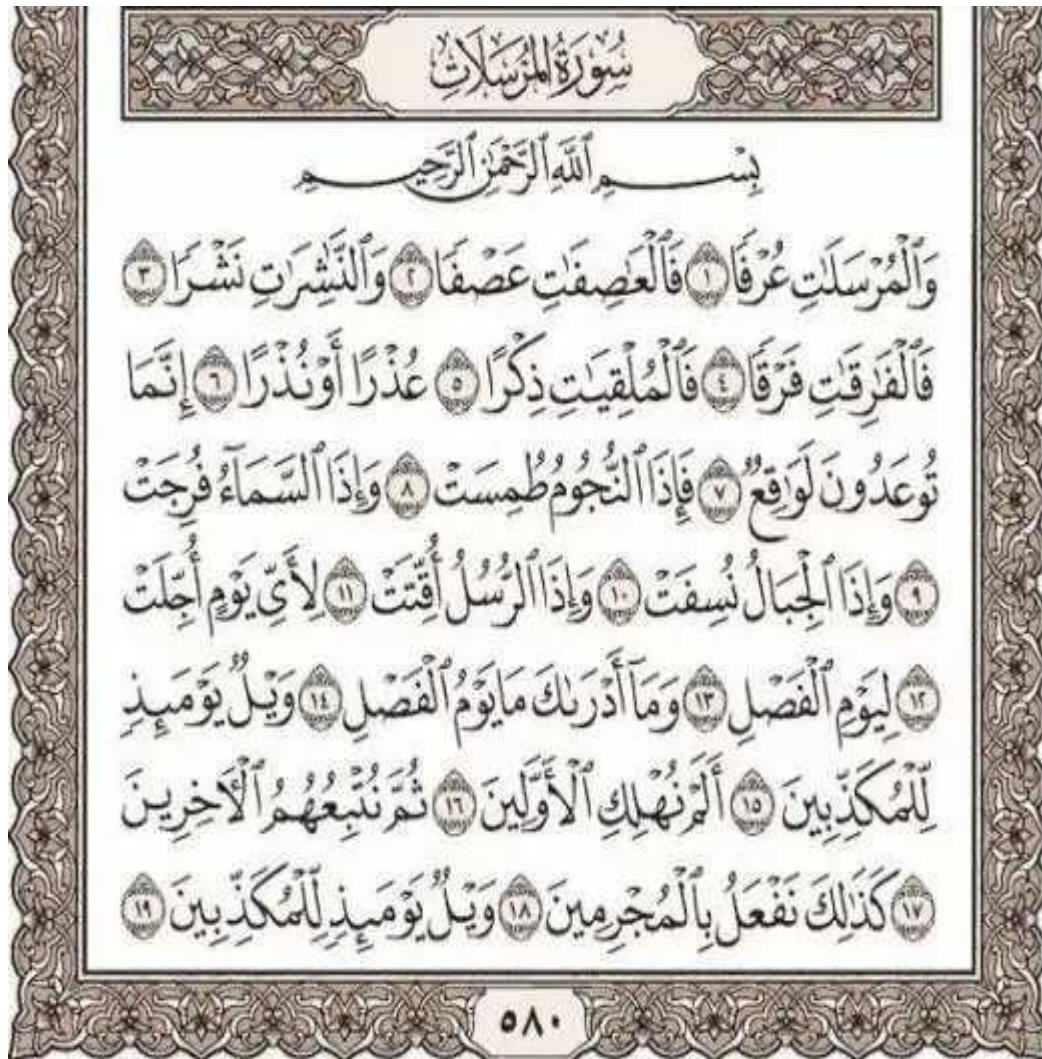 سُورَةُ المُرۡسَلَاتِ
بِسۡمِ ٱللَّهِ ٱلرَّحۡمَٰنِ ٱلرَّحِيمِ
وَٱلۡمُرۡسَلَٰتِ عُرۡفٗا ١ فَٱلۡعَٰصِفَٰتِ عَصۡفٗا ٢ وَٱلنَّٰشِرَٰتِ نَشۡرٗا ٣
فَٱلۡفَٰرِقَٰتِ فَرۡقٗا ٤ فَٱلۡمُلۡقِيَٰتِ ذِكۡرًا ٥ عُذۡرًا أَوۡ نُذۡرًا ٦ إِنَّمَا
تُوعَدُونَ لَوَٰقِعٞ ٧ فَإِذَا ٱلنُّجُومُ طُمِسَتۡ ٨ وَإِذَا ٱلسَّمَآءُ فُرِجَتۡ
٩ وَإِذَا ٱلۡجِبَالُ نُسِفَتۡ ١٠ وَإِذَا ٱلرُّسُلُ أُقِّتَتۡ ١١ لِأَيِّ يَوۡمٍ أُجِّلَتۡ
١٢ لِيَوۡمِ ٱلۡفَصۡلِ ١٣ وَمَآ أَدۡرَىٰكَ مَا يَوۡمُ ٱلۡفَصۡلِ ١٤ وَيۡلٞ يَوۡمَئِذٖ
لِّلۡمُكَذِّبِينَ ١٥ أَلَمۡ نُهۡلِكِ ٱلۡأَوَّلِينَ ١٦ ثُمَّ نُتۡبِعُهُمُ ٱلۡأٓخِرِينَ
١٧ كَذَٰلِكَ نَفۡعَلُ بِٱلۡمُجۡرِمِينَ ١٨ وَيۡلٞ يَوۡمَئِذٖ لِّلۡمُكَذِّبِينَ ١٩
٥٨٠